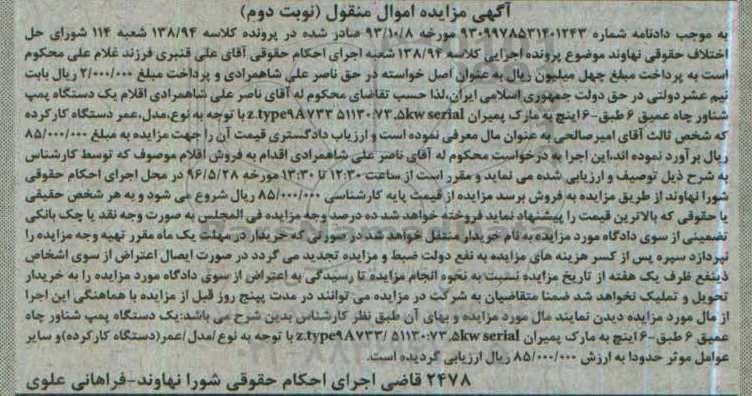 آگهی مزایده اموال منقول (نوبت دوم)
به موجب دادنامه شماره ۹۳۰۹۹۷۸۵۳۱۴۰۱۲۴۳ مورخه ۹۳/۱۰/۸ صادر شده در پرونده کلاسه ۱۳۸/۹۴ شعبه ۱۱۴ شورای حل
اختلاف حقوقی نهاوند موضوع پرونده اجرایی کلاسه ۱۳۸/۹۴ شعبه اجرای احکام حقوقی آقای علی قنبری فرزند غلام علی محکوم
است به پرداخت مبلغ چهل میلیون ریال به عنوان اصل خواسته در حق ناصر علی شاهمرادی و پرداخت مبلغ ۲/۰۰۰/۰۰۰ ریال بابت
نیم عشر دولتی در حق دولت جمهوری اسلامی ایران،لذا حسب تقاضای محکوم له آقای ناصر علی شاهمرادی اقلام یک دستگاه پمپ
شناور چاه عمیق ۶ طبق-۶ اینچ به مارک پمیران z.type۹۸۷۳۳ ۵۱۱۳۰:۷۳.۵kw serial با توجه به نوع،مدل،عمر دستگاه کارکرده
که شخص ثالث آقای امیر صالحی به عنوان مال معرفی نموده است و ارزیاب دادگستری قیمت آن را جهت مزایده به مبلغ ۸۵/۰۰۰/۰۰۰
ریال بر آورد نموده اند.این اجرا به درخواست محکوم له آقای ناصر علی شاهمرادی اقدام به فروش اقلام موصوف که توسط کارشناس
به شرح ذیل توصیف و ارزیابی شده می نماید و مقرر است از ساعت ۱۲:۳۰ تا ۱۳:۳۰ مورخه ۹۶/۵/۲۸ در محل اجرای احکام حقوقی
شورا نهاوند از طریق مزایده به فروش برسد مزایده از قیمت پایه کارشناسی ۸۵/۰۰۰/۰۰۰ ریال شروع می شود و به هر شخص حقیقی
یا حقوقی که بالاترین قیمت را پیشنهاد نماید فروخته خواهد شد ده درصد وجه مزایده فی المجلس به صورت وجه نقد یا چک بانکی
تضمینی از سوی دادگاه مورد مزایده به نام خریدار منتقل خواهد شد در صورتی که خریدار در مهلت یک ماه مقرر تهیه وجه مزایده را
نپردازد سپره پس از کسر هزینه های مزایده به نفع دولت ضبط و مزایده تجدید می گردد در صورت ایصال اعتراض از سوی اشخاص
ذینفع ظرف یک هفته از تاریخ مزایده نسبت به نحوه انجام مزایده تا رسیدگی به اعتراض از سوی دادگاه مورد مزایده را به خریدار
تحویل و تملیک نخواهد شد ضمنا متقاضیان به شرکت در مزایده می توانند در مدت پینج روز قبل از مزایده با هماهنگی این اجرا
از مال مورد مزایده دیدن نمایند مال مورد مزایده و بهای آن طبق نظر کارشناس بدین شرح می باشد:یک دستگاه پمپ شناور چاه
عمیق ۶ طبق-۶ اینچ به مارک پمیران z.type۹۸۷۳۳/ ۵۱۱۳۰:۷۳.۵kw serial با توجه به نوع/مدل/عمر(دستگاه کارکرده)و سایر
عوامل موثر حدودا به ارزش ۸۵/۰۰۰/۰۰۰ ریال ارزیابی گردیده است.
۲۴۷۸ قاضی اجرای احکام حقوقی شورا نهاوند-فراهانی علوی